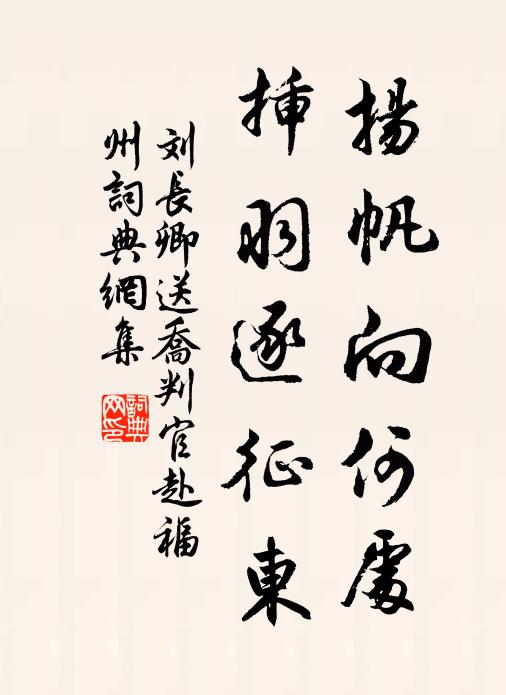 揚帆向何處
插羽逐征東
刘長卿送喬判官赴福
州詞典網集
詞典網印